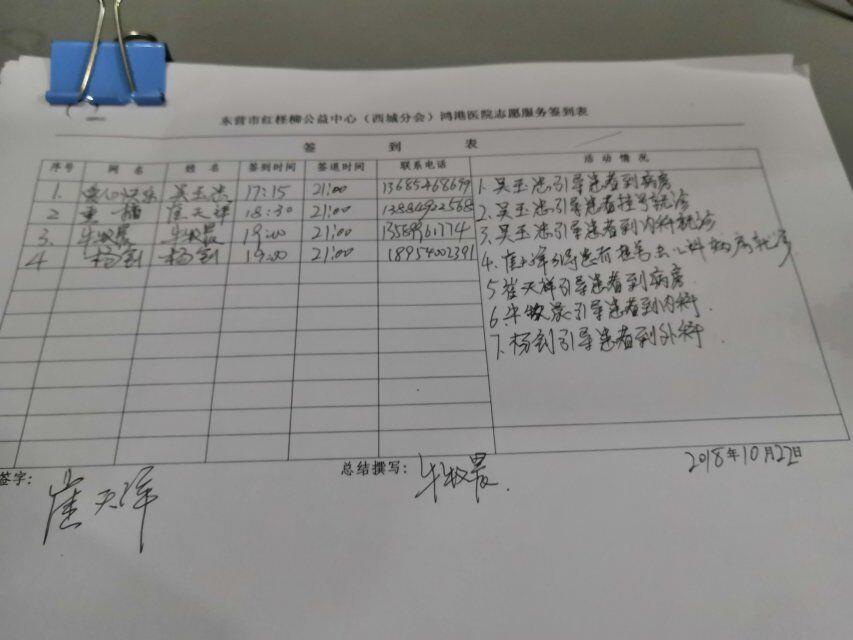 东营市红柽柳公益中心（西城分会）鸿港医院志愿服务签到表
签 到 表
序号 网 名 姓 名 签到时间 签退时间 联系电话 活动情况
1. 吴玉杰 17:15 21:00 13685468699
2 崔天祥 18:30 21:00 13884922568
3. 牛敏晨 牛敏晨 19:00 21:00
4 杨剑 杨剑 19:00 21:00 18954002391
1. 吴玉杰引导患者到病房
2. 吴玉杰引导患者挂号就诊
3. 吴玉杰引导患者到内科就诊
4. 崔天祥引导患者挂号去
5 崔天祥引导患者到病房
6. 牛敏晨引导患者到内科
7. 杨剑引导患者到外科
签字： 崔天祥 总结撰写： 牛敏晨. 2018年10月22日